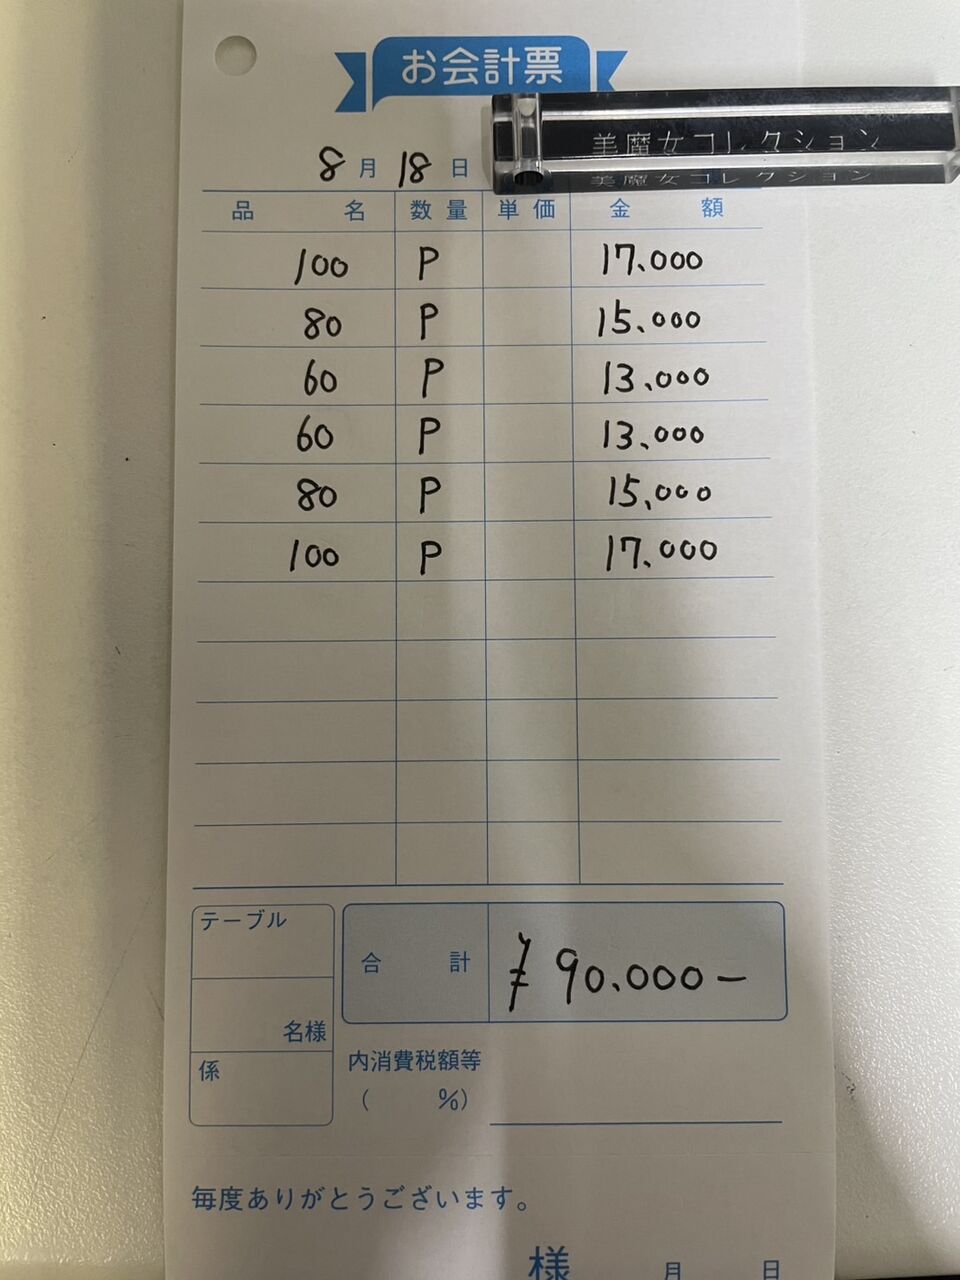 お会計票
美魔女コレクション
美魔女コレクション
8月18日
品名 数量 単価 金額
100 P 17.000
80 P 15.000
60 P 13.000
60 P 13.000
80 P 15,000
100 P 17.000
テーブル
合計 ¥90.000-
名様
係
内消費税額等
( %)
毎度ありがとうございます。
様 月 日